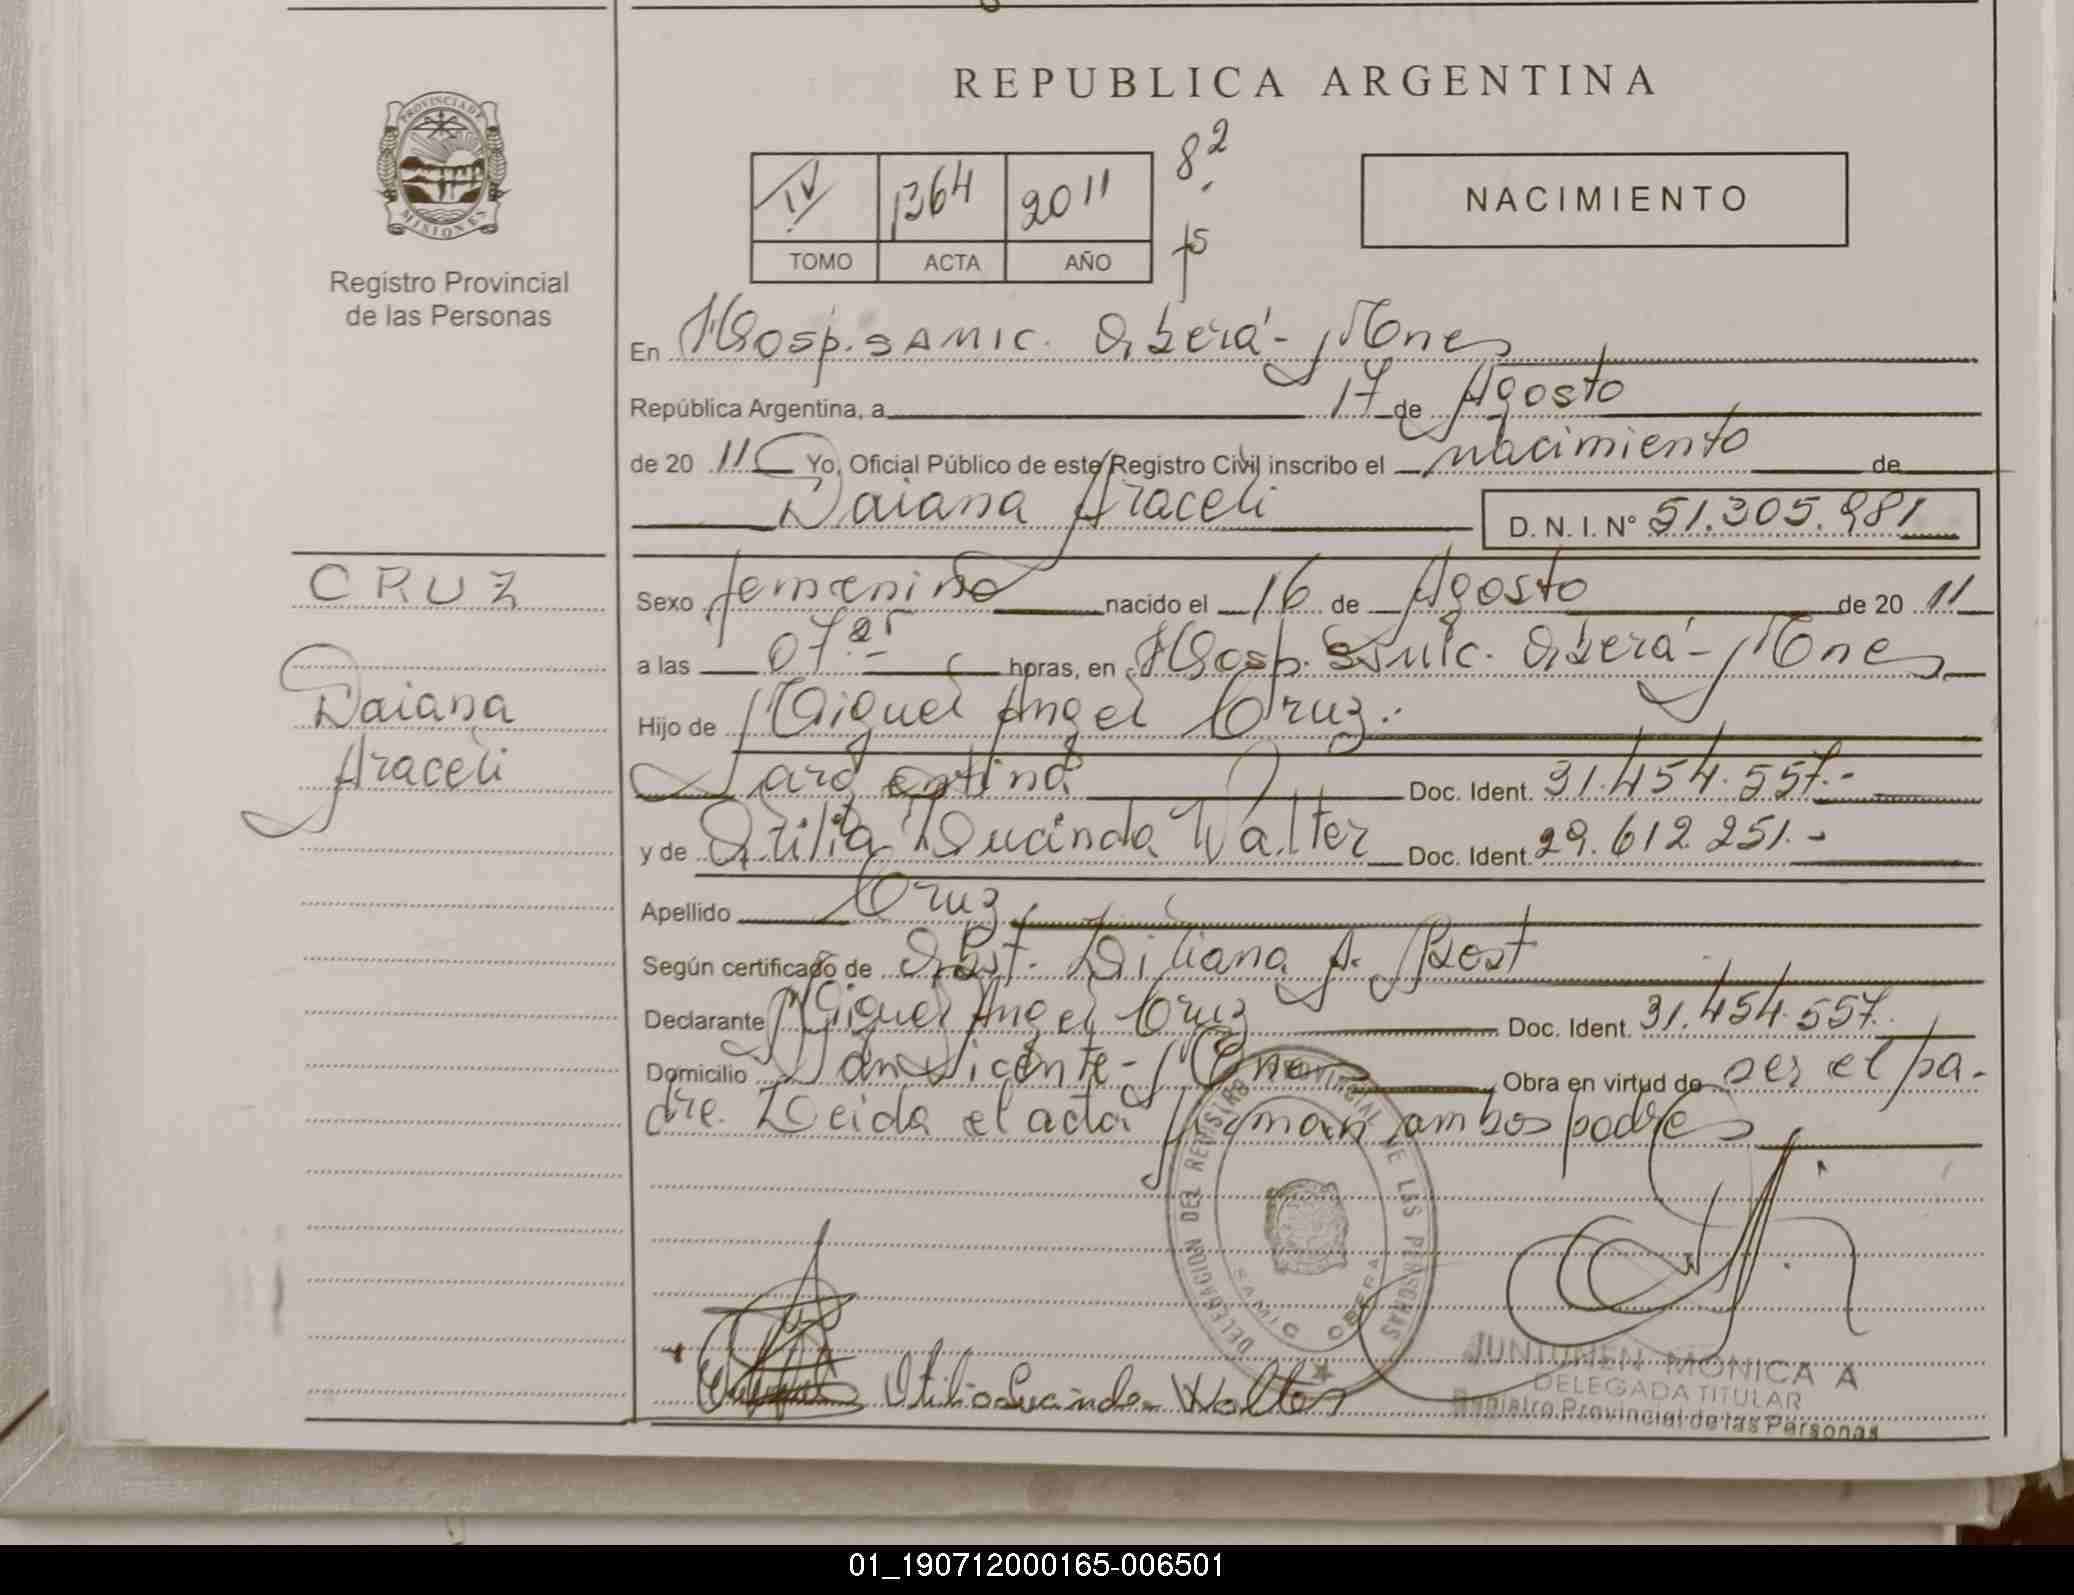 REPUBLICA ARGENTINA
PROVINCIA DE
MISIONES
Registro Provincial
de las Personas
IV 1364 2011
TOMO ACTA AÑO
NACIMIENTO
En Hosp. SAMIC. Oberá - Mnes
República Argentina, a 17 de Agosto
de 20 11 Yo, Oficial Público de este Registro Civil inscribo el nacimiento de
Daiana Araceli
D. N. I. N° 51.305.981
CRUZ
Daiana
Araceli
Sexo femenino nacido el 16 de Agosto de 20 11
a las horas, en Hosp. Samic. Oberá - Mnes
Hijo de Miguel Angel Cruz.
argentina Doc. Ident. 31.454.557.-
y de Otilia Lucinda Walter Doc. Ident. 29.612.251.-
Apellido Cruz
Según certificado de Obst. Liliana A. Rost
Declarante Miguel Angel Cruz Doc. Ident. 31.454.557.
Domicilio San Vicente - Mnes Obra en virtud de ser el pa-
dre. Leida el acta firman ambos padres
DELEGACION DEL REGISTRO PROVINCIAL DE LAS PERSONAS
SAMIC OBERA
Otilia Lucinda Walter
JUNTUNEN MONICA A
DELEGADA TITULAR
Registro Provincial de las Personas
01_190712000165-006501